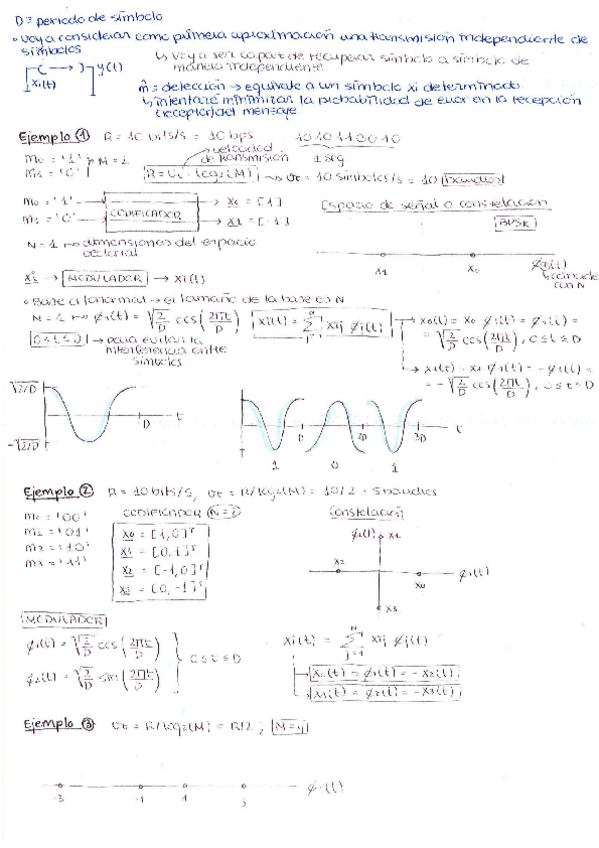 D = periodo de símbolo
• voy a considerar como primera aproximación una transmisión independiente de
símbolos
↳ voy a ser capaz de recuperar símbolo a símbolo de
manera independiente
xi(t) y(t)
m̂ = detección → equivale a un símbolo xi determinado
↳ intentaré minimizar la probabilidad de error en la recepción
(receptor) del mensaje
Ejemplo ① R = 10 bits/s = 10 bps 1010110010
1 seg
velocidad
de transmisión
m0 = '1' M = 2
m1 = '0'
R = Vt · log2(M) → Vt = 10 símbolos/s = 10 baudios
m0 = '1' → CODIFICADOR → x0 = [1]
m1 = '0' → x1 = [-1]
Espacio de señal o constelación
BPSK
N = 1 → dimensiones del espacio
vectorial
x1 x0 ϕ1(t)
coincide
con N
xi → MODULADOR → xi(t)
• Base ortonormal → el tamaño de la base es N
N = 1 → ϕ1(t) = √(2/D) cos(2πt/D)
xi(t) = Σ xij ϕj(t)
→ x0(t) = x0 ϕ1(t) = ϕ1(t) =
= √(2/D) cos(2πt/D), 0 ≤ t ≤ D
0 ≤ t ≤ D → para evitar la
interferencia entre
símbolos
→ x1(t) = x1 ϕ1(t) = -ϕ1(t) =
= -√(2/D) cos(2πt/D), 0 ≤ t ≤ D
√2/D
-√2/D
D t
D 2D 3D t
1 0 1
Ejemplo ② R = 10 bits/s, Vt = R/log2(M) = 10/2 = 5 baudios
m0 = '00'
m1 = '01'
m2 = '10'
m3 = '11'
CODIFICADOR N = 2
x0 = [1,0]ᵀ
x1 = [0,1]ᵀ
x2 = [-1,0]ᵀ
x3 = [0,-1]ᵀ
Constelación
ϕ2(t) x1
x2 x0 ϕ1(t)
x3
MODULADOR
ϕ1(t) = √(2/D) cos(2πt/D)
ϕ2(t) = √(2/D) sin(2πt/D)
0 ≤ t ≤ D
xi(t) = Σ_{j=1}^{N} xij ϕj(t)
→ x0(t) = ϕ1(t) = -x2(t)
→ x1(t) = ϕ2(t) = -x3(t)
Ejemplo ③ Vt = R/log2(M) = R/2 ; M = 4
-3 -1 1 3 ϕ1(t)